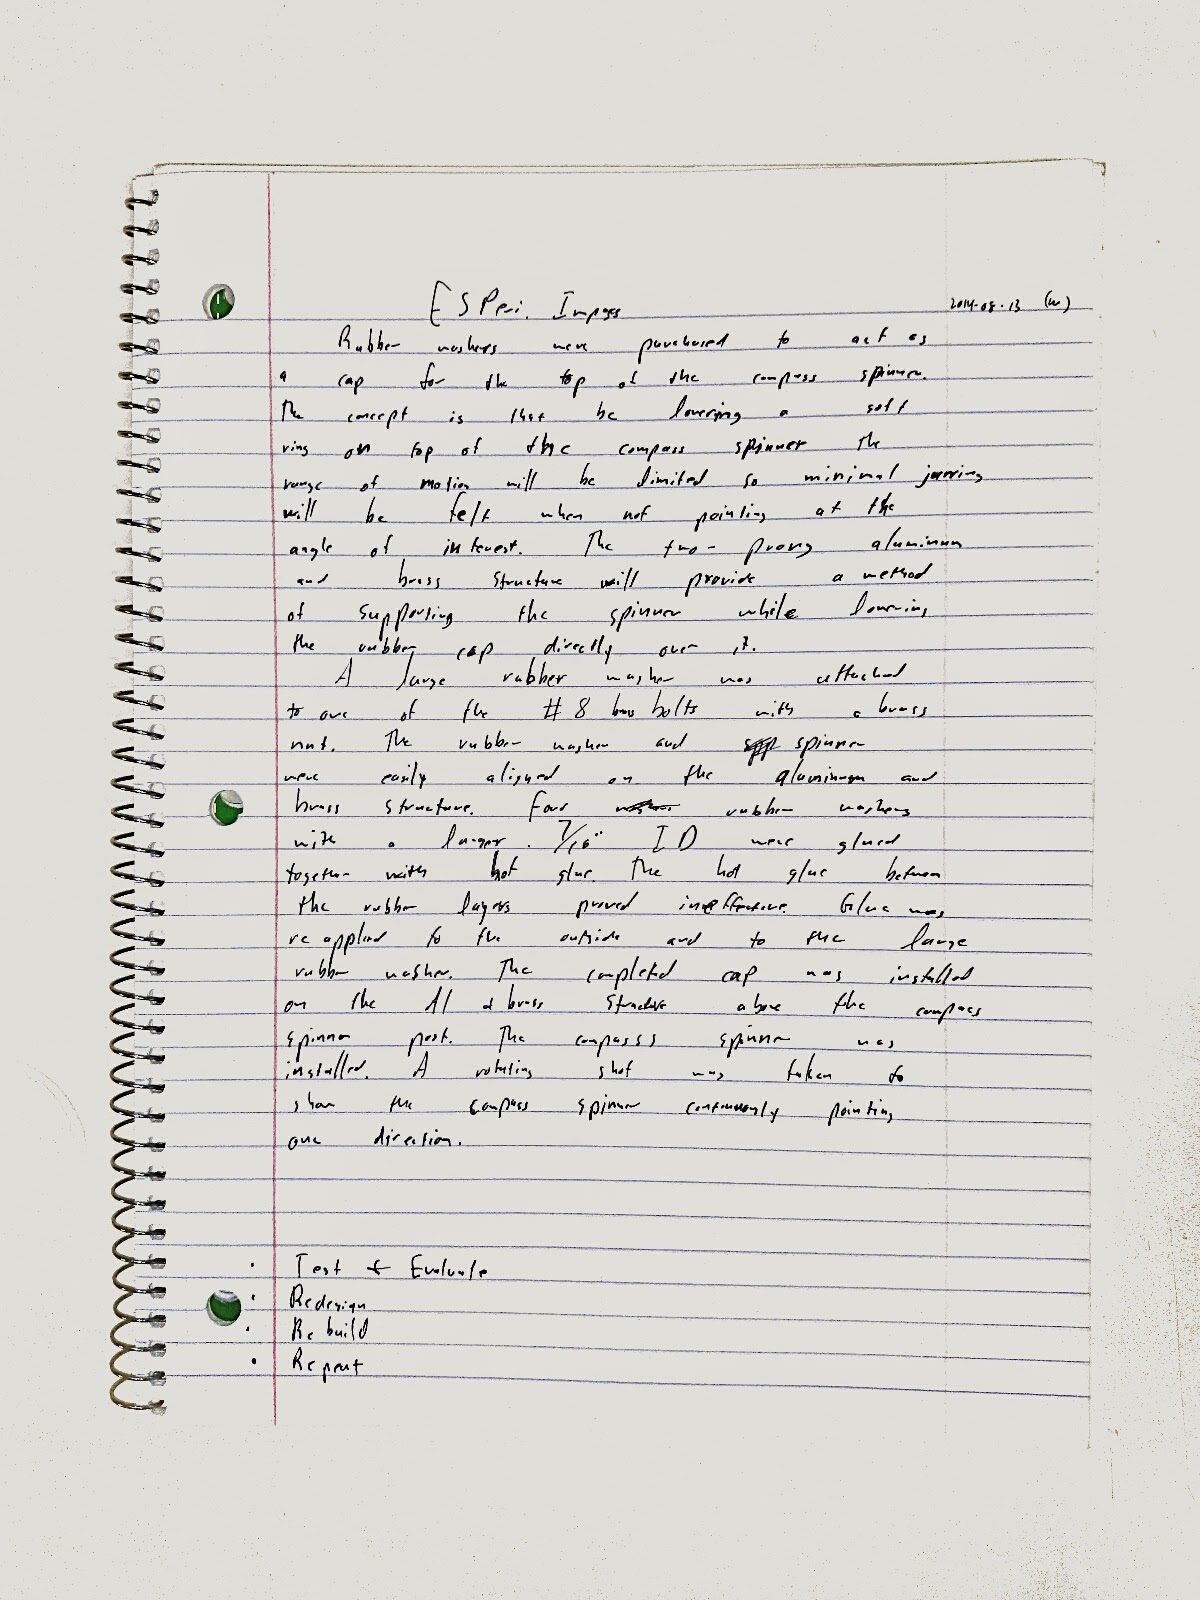 ESPeri. 2014-08-13 (W)
Rubber washers were purchased to act as
a cap for the top of the compass spinner.
The concept is that be lowering a soft
ring on top of the compass spinner the
range of motion will be limited so minimal jarring
will be felt when not pointing at the
angle of interest. The two-prong aluminum
and brass structure will provide a method
of supporting the spinner while lowering
the rubber cap directly over it.
A large rubber washer was attached
to one of the #8 bolts with a brass
nut. The rubber washer and spinner
were easily aligned on the aluminum and
brass structure. Four rubber washers
with a larger 7/16" ID were glued
together with hot glue. The hot glue between
the rubber layers proved ineffective. Glue was
re applied to the outside and to the large
rubber washer. The completed cap was installed
on the Al & brass structure above the compass
spinner post. The compasss spinner was
installed. A rotating shot was taken to
show the compass spinner continuously pointing
one direction.
• Test & Evaluate
• Redesign
• Re build
• Repeat